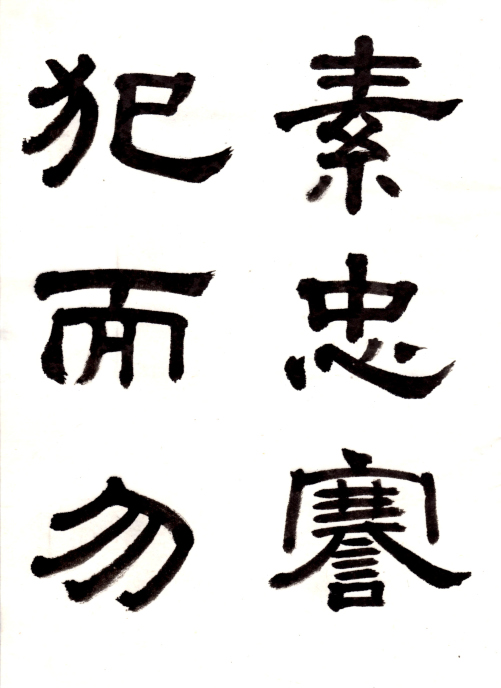 素忠謇
犯而勿